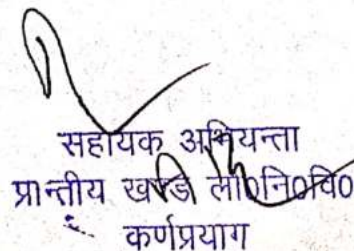 सहायक अभियन्ता
प्रान्तीय खण्ड लो०नि०वि०
कर्णप्रयाग